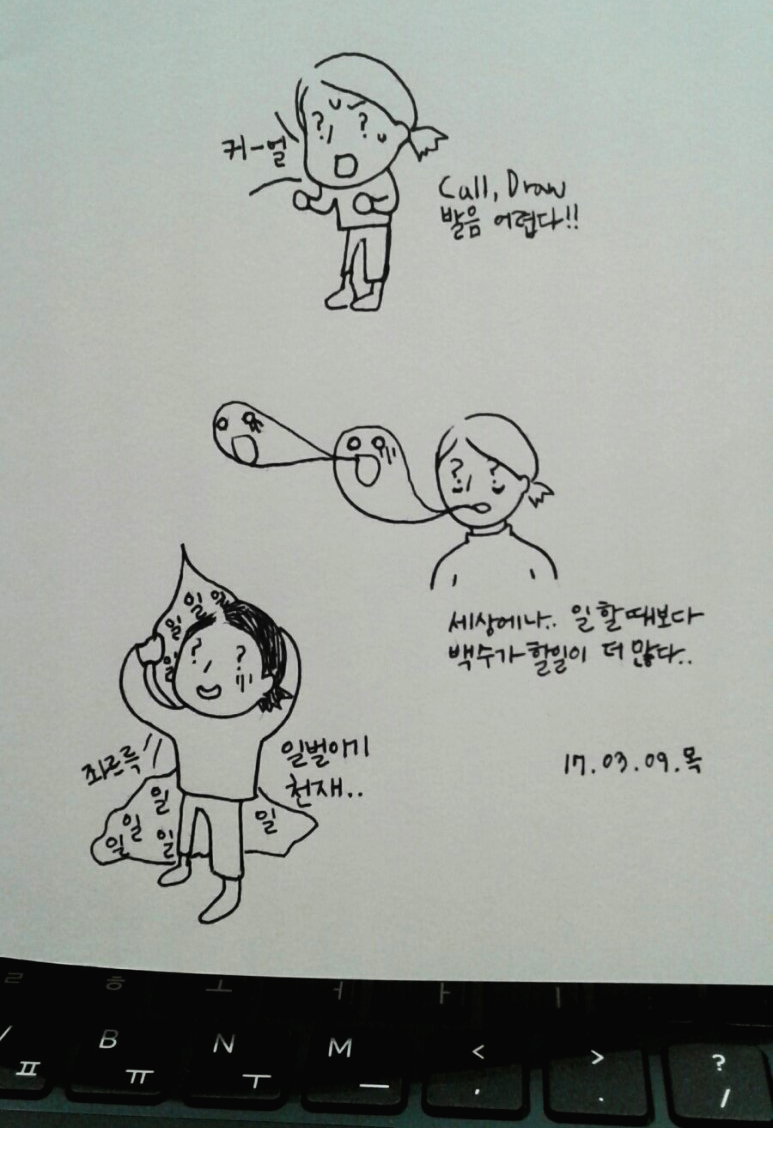 커-얼
Call, Draw
발음 어렵다!!
세상에나.. 일할때보다
백수가 할일이 더 많다..
일 일 일
일
일
좌르륵
일벌이기
천재..
일
일 일
일 일
17.03.09.목
ㄹ ㅎ ㅗ ㅓ ㅏ ㅣ
B N M < > ?
ㅍ ㅠ ㅜ ㅡ , . /